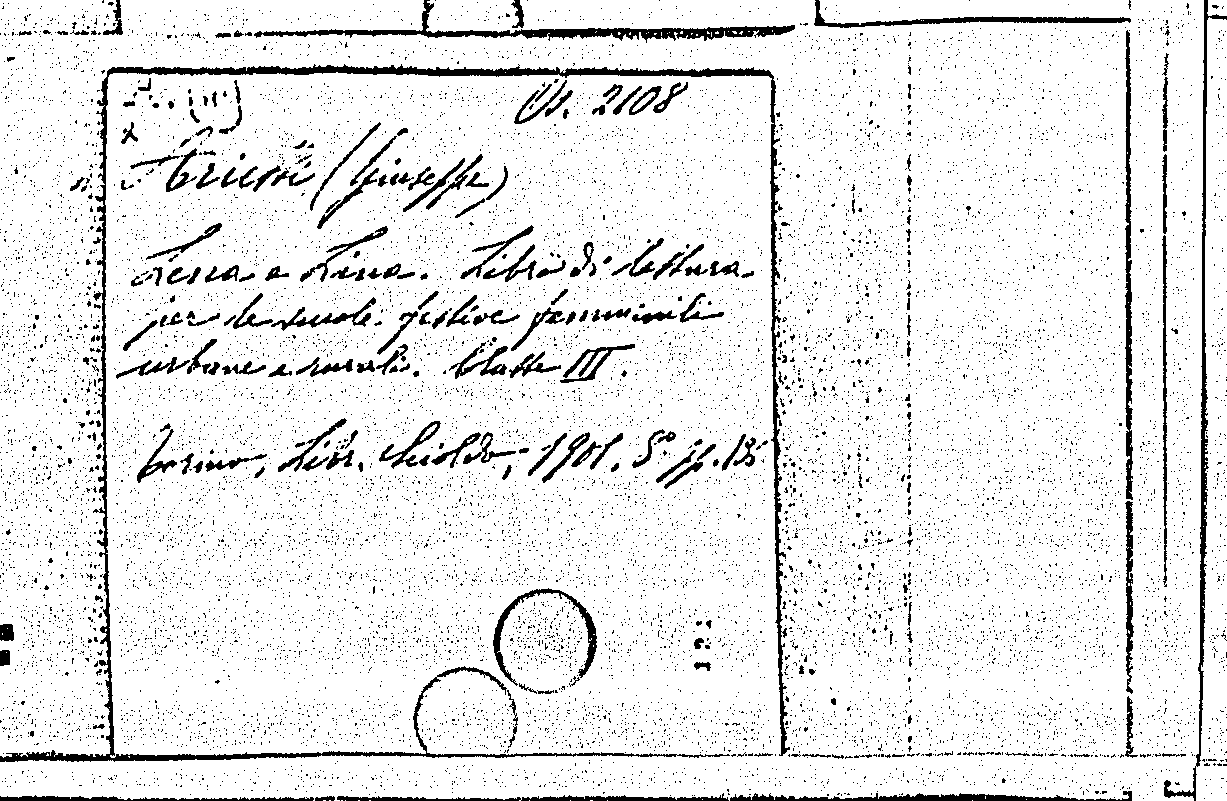 Us. 2108
(Giuseppe)
Teresa e Lina. Libro di lettura
per le scuole festive femminili
urbane e rurali. Classe III.
Torino, Libr. Chioldo, 1901. 8° pp.